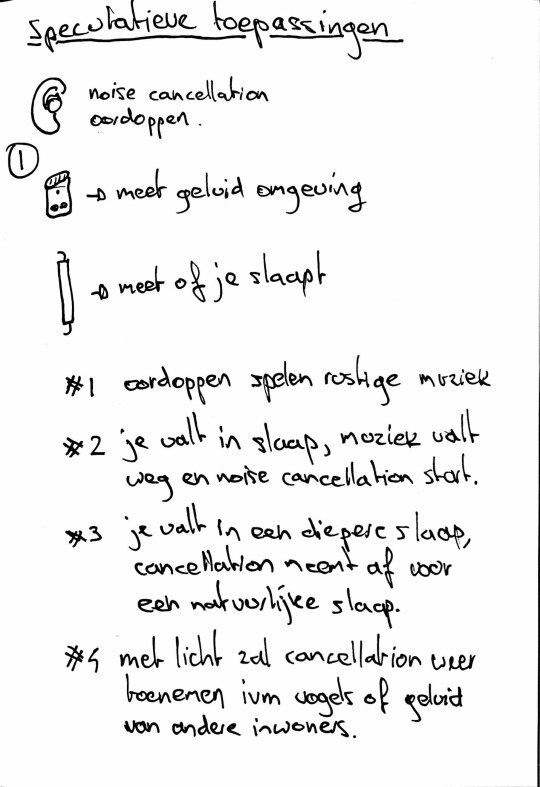 speculatieve toepassingen
noise cancellation
oordoppen.
1
→ meet geluid omgeving
→ meet of je slaapt
#1 oordoppen spelen rustige muziek
#2 je valt in slaap, muziek valt
weg en noise cancellation start.
#3 je valt in een diepere slaap,
cancellation neemt af voor
een natuurlijke slaap.
#4 met licht zal cancellation weer
toenemen ivm vogels of geluid
van andere inwoners.